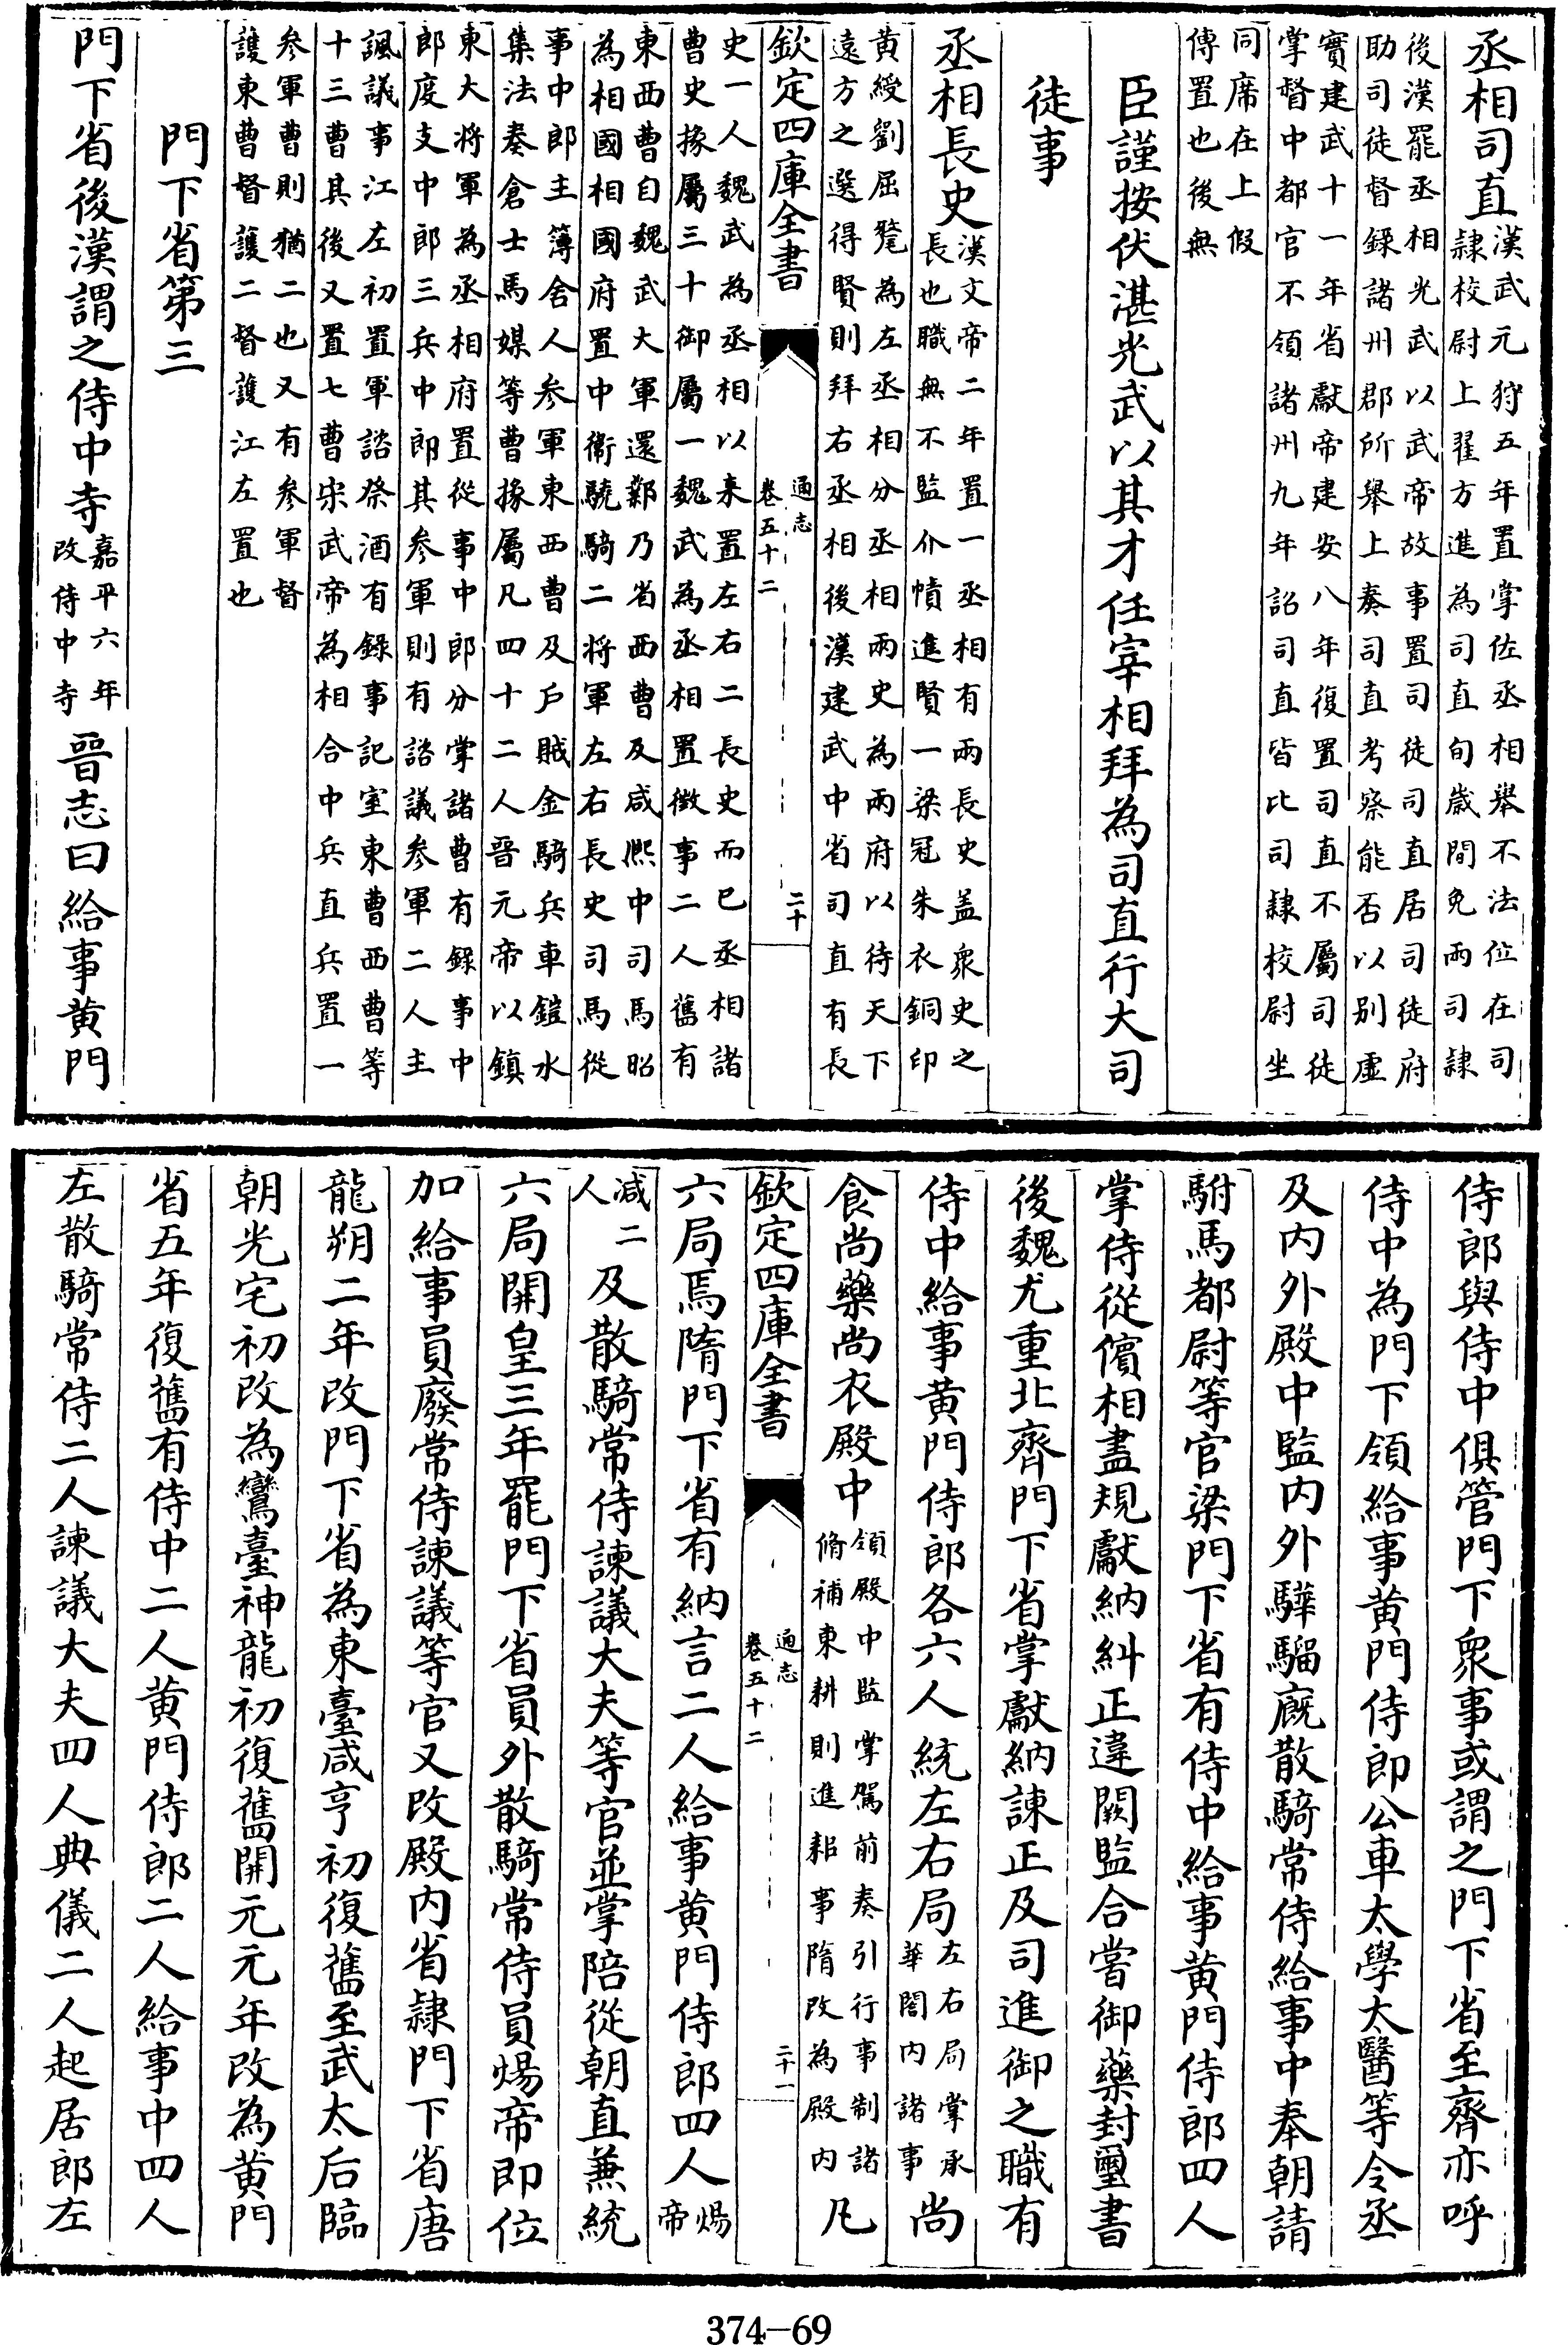 丞相司直漢武元狩五年置掌佐丞相舉不法位在司
隷校尉上翟方進為司直旬歲間免兩司隷
後漢罷丞相光武以武帝故事置司徒司直居司徒府
助司徒督錄諸州郡所舉上奏司直考察能否以别虚
實建武十一年省獻帝建安八年復置司直不屬司徒
掌督中都官不領諸州九年詔司直皆比司隷校尉坐
同席在上假
傳置也後無
臣謹按伏湛光武以其才任宰相拜為司直行大司
徒事
丞相長史漢文帝二年置一丞相有兩長史盖衆史之
長也職無不監介幘進賢一梁冠朱衣銅印
黄綬劉屈氂為左丞相分丞相兩史為兩府以待天下
遠方之選得賢則拜右丞相後漢建武中省司直有長
欽定四庫全書
通志
卷五十二
二十
史一人魏武為丞相以來置左右二長史而已丞相諸
曹史掾屬三十御屬一魏武為丞相置徵事二人舊有
東西曹自魏武大軍還鄴乃省西曹及咸熙中司馬昭
為相國相國府置中衛驍騎二将軍左右長史司馬從
事中郎主簿舍人参軍東西曹及戶賊金騎兵車鎧水
集法奏倉士馬媒等曹掾屬凡四十二人晉元帝以鎮
東大将軍為丞相府置從事中郎分掌諸曹有錄事中
郎度支中郎三兵中郎其参軍則有諮議参軍二人主
諷議事江左初置軍諮祭酒有錄事記室東曹西曹等
十三曹其後又置七曹宋武帝為相合中兵直兵置一
参軍曹則猶二也又有参軍督
護東曹督護二督護江左置也
門下省第三
門下省後漢謂之侍中寺嘉平六年
改侍中寺晉志曰給事黄門
侍郎與侍中俱管門下衆事或謂之門下省至齊亦呼
侍中為門下領給事黄門侍郎公車太學太醫等令丞
及内外殿中監内外驊騮廐散騎常侍給事中奉朝請
駙馬都尉等官梁門下省有侍中給事黄門侍郎四人
掌侍從儐相盡規獻納糾正違闕監合嘗御藥封璽書
後魏尤重北齊門下省掌獻納諫正及司進御之職有
侍中給事黄門侍郎各六人統左右局左右局掌承
華閤内諸事尚
食尚藥尚衣殿中領殿中監掌駕前奏引行事制諸
脩補東耕則進耜事隋改為殿内凡
欽定四庫全書
通志
卷五十二
二十一
六局焉隋門下省有納言二人給事黄門侍郎四人煬
帝
减二
人及散騎常侍諫議大夫等官並掌陪從朝直兼統
六局開皇三年罷門下省員外散騎常侍員煬帝即位
加給事員廢常侍諫議等官又改殿内省隷門下省唐
龍朔二年改門下省為東臺咸亨初復舊至武太后臨
朝光宅初改為鸞臺神龍初復舊開元元年改為黄門
省五年復舊有侍中二人黄門侍郎二人給事中四人
左散騎常侍二人諫議大夫四人典儀二人起居郎左
374-69